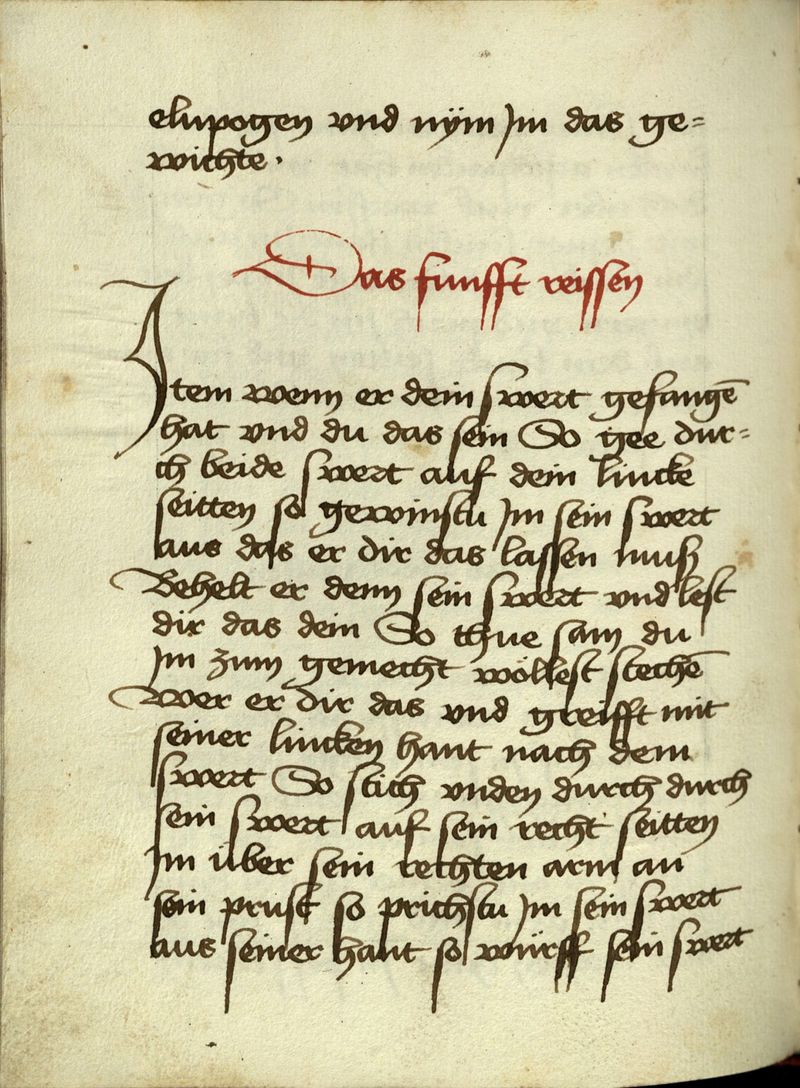 elnpogen vnd nÿm Jm das ge=
wichte .
Das funfft reissen
Jtem wenn er dein swert gefangē
hat vnd du das sein So gee dur=
ch beide swert auf dein lincke
seitten so gewinstu Jm sein swert
aus das er dir das lassen muß
Behelt er denn sein swert vnd lest
dir das dein So thue sam du
Jm zum gemecht wöllest stechē
Wer er dir das vnd greifft mit
seiner lincken hant nach dem
swert So stich vnden durch durch
sein swert auf sein recht seitten
Jm über sein rechten arm an
sein prust so prichstu Jm sein swert
aus seiner hant so würff sein swert